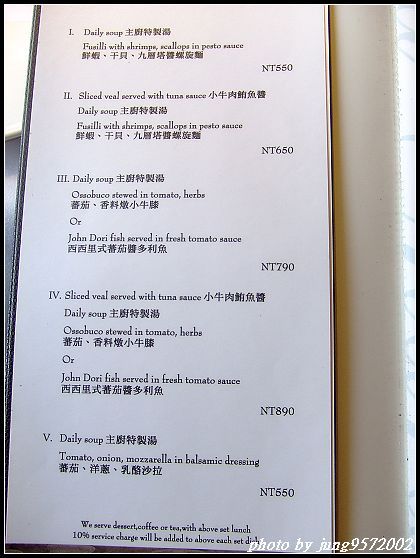 I. Daily soup 主廚特製湯
Fusilli with shrimps, scallops in pesto sauce
鮮蝦、干貝、九層塔醬螺旋麵
NT550
II. Sliced veal served with tuna sauce 小牛肉鮪魚醬
Daily soup 主廚特製湯
Fusilli with shrimps, scallops in pesto sauce
鮮蝦、干貝、九層塔醬螺旋麵
NT650
III. Daily soup 主廚特製湯
Ossobuco stewed in tomato, herbs
蕃茄、香料燉小牛膝
Or
John Dori fish served in fresh tomato sauce
西西里式蕃茄醬多利魚
NT790
IV. Sliced veal served with tuna sauce 小牛肉鮪魚醬
Daily soup 主廚特製湯
Ossobuco stewed in tomato, herbs
蕃茄、香料燉小牛膝
Or
John Dori fish served in fresh tomato sauce
西西里式蕃茄醬多利魚
NT890
V. Daily soup 主廚特製湯
Tomato, onion, mozzarella in balsamic dressing
蕃茄、洋蔥、乳酪沙拉
NT550
We serve dessert,coffee or tea,with above set lunch
10% service charge will be added to above each set dish
photo by jung9572002